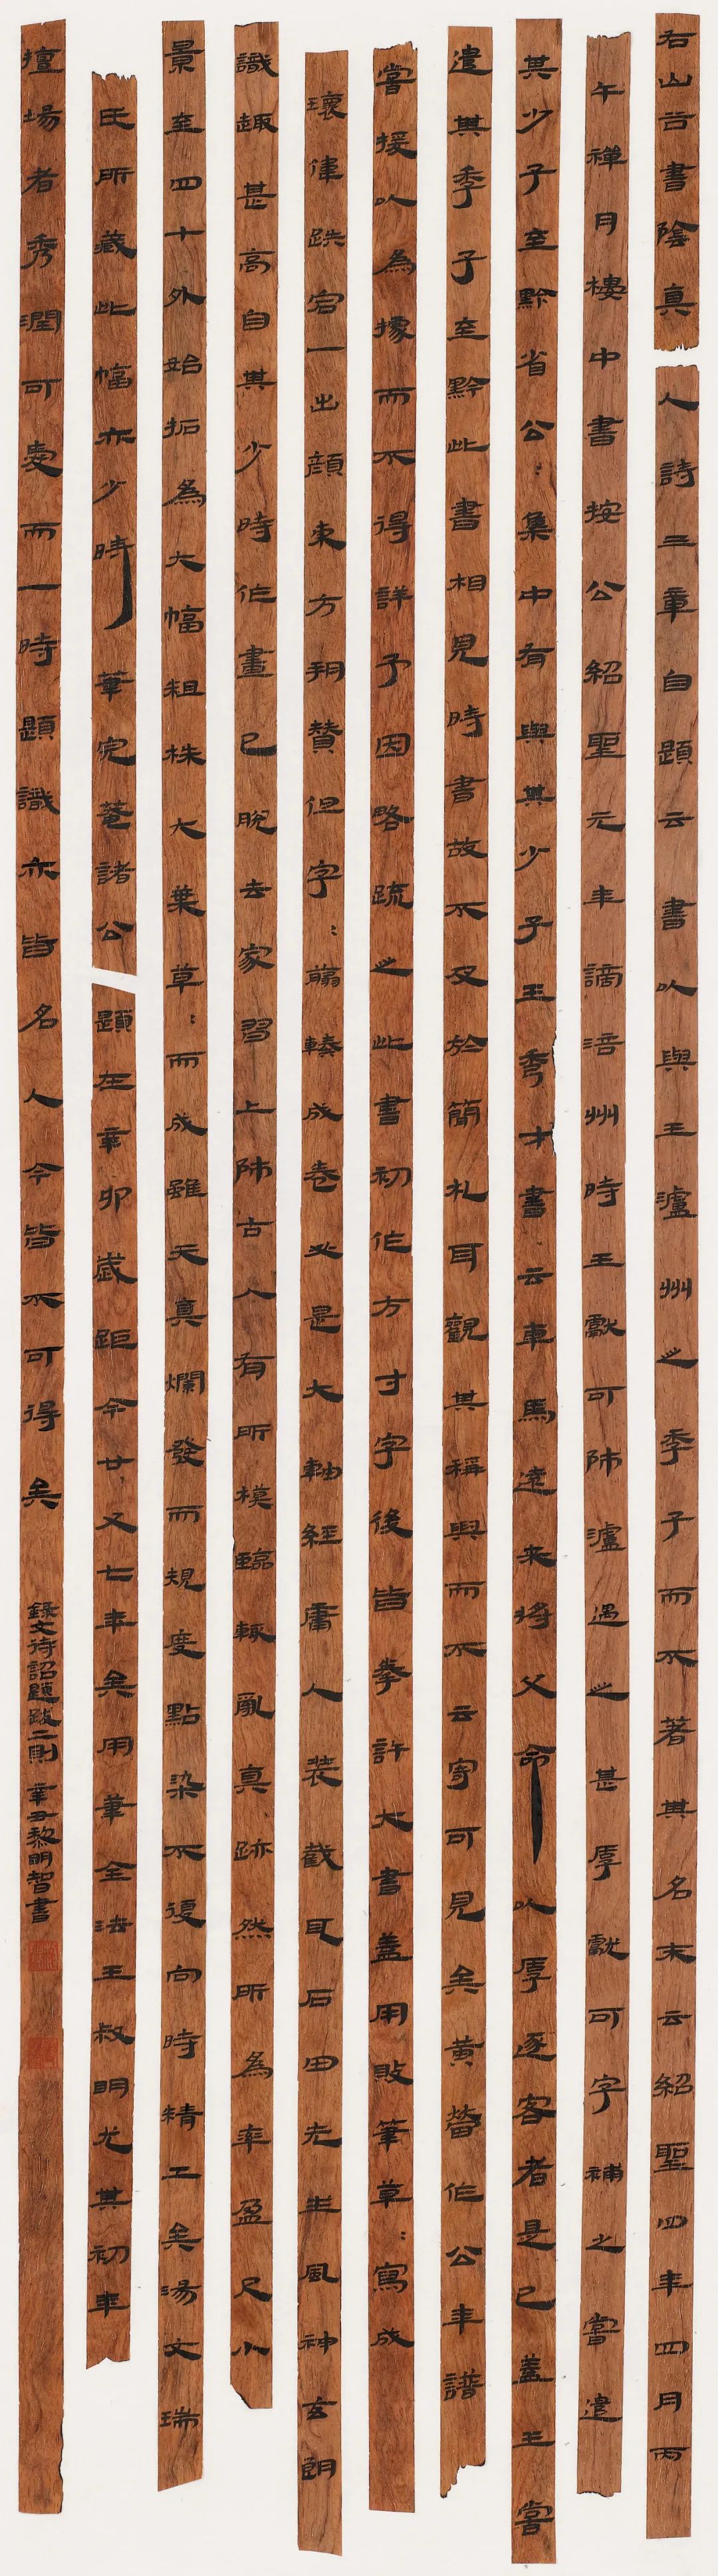 右山谷書陰真人詩三章自題云書以與王瀘州之季子而不著其名末云紹聖四年四月丙
午禪月樓中書按公紹聖元年謫涪州時王獻可帥瀘遇之甚厚獻可字補之嘗遣
其少子至黔省公:集中有與其少子王秀才書云車馬遠来將父命以厚逐客者是已蓋王嘗
遣其季子至黔此書相見時書故不及於簡札耳觀其稱與而不云寄可見矣黃㽦作公年譜
嘗援以為據而不得詳予因略疏之此書初作方寸字後皆拳許大書蓋用敗筆草:寫成
瓌偉跌宕一出顏東方朔贊但字:翦輳成卷必是大軸經庸人裝截耳石田先生風神玄朗
識趣甚高自其少時作畫已脫去家習上師古人有所模臨輒亂真跡然所為率盈尺小
景至四十外始拓為大幅粗株大葉草:而成雖天真爛發而規度點染不復向時精工矣湯文瑞
氏所藏此幅亦少時筆完菴諸公題在辛卯歲距今廿又七年矣用筆全法王叔明尤其初年
擅場者秀潤可愛而一時題識亦皆名人今皆不可得矣
錄文待詔題跋二則 辛丑黎明智書